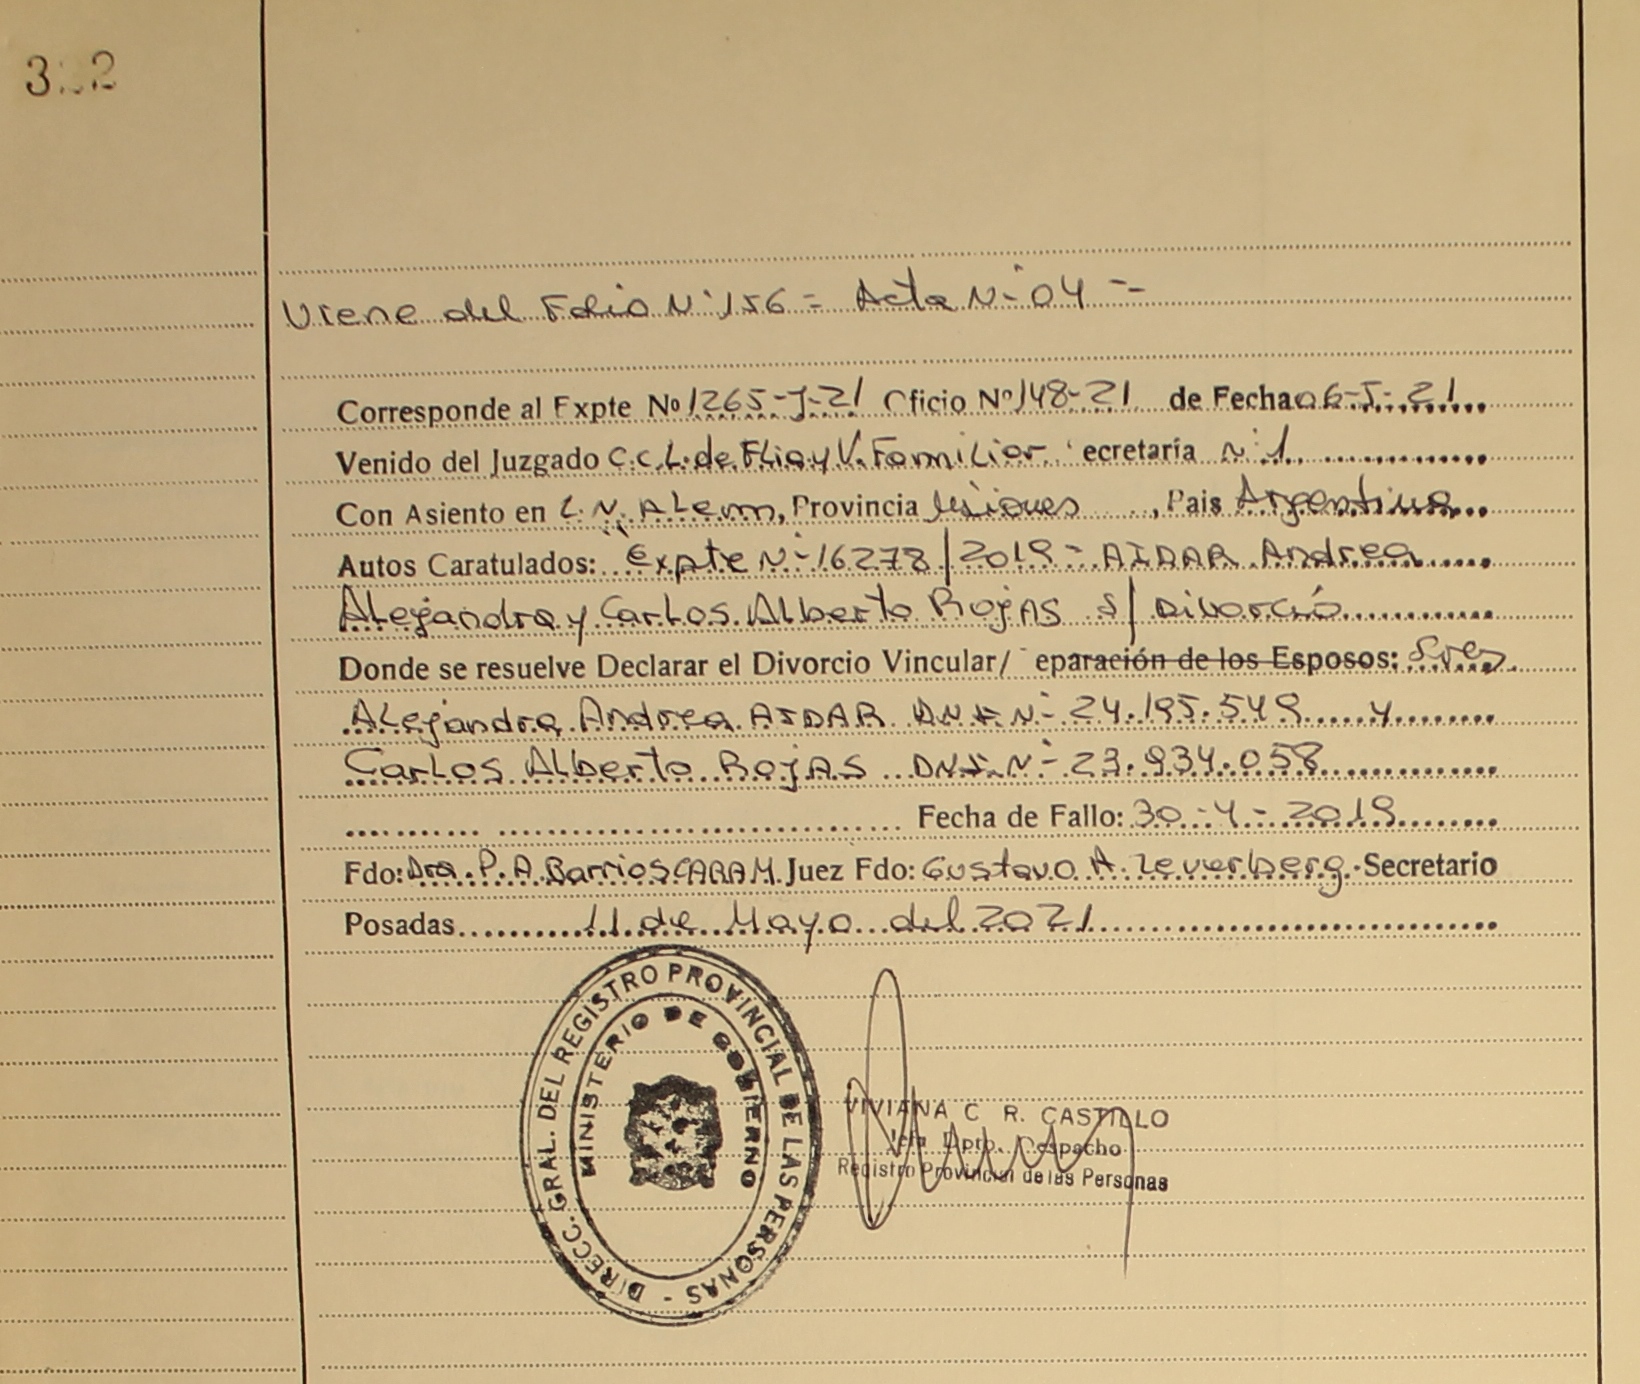 Viene del Folio N° 156 = Acta N° 04 =
Corresponde al Expte Nº 1265-J-21 Oficio Nº 148-21 de Fecha 06-5-21
Venido del Juzgado C.C.L. de Flia y V. Familiar ecretaría N° 1
Con Asiento en L. N. Alem, Provincia Misiones, Pais Argentina
Autos Caratulados: "Expte N° 16278/2019 - AIDAR Andrea
Alejandra y Carlos Alberto Rojas S/ Divorcio
Donde se resuelve Declarar el Divorcio Vincular/ eparación de los Esposos: Sres
Alejandra Andrea AIDAR DNI N° 24.195.549 y
Carlos Alberto Rojas DNI N° 23.934.058
Fecha de Fallo: 30-4-2019
Fdo: Dra. P. A. Barrios CARAM. Juez Fdo: Gustavo A. Secretario
Posadas 11 de Mayo del 2021
DIRECC. GRAL. DEL REGISTRO PROVINCIAL DE LAS PERSONAS -
MINISTERIO DE GOBIERNO
VIVIANA C R. CASTILLO
Jefa Dpto. Despacho
Registro Provincial de las Personas